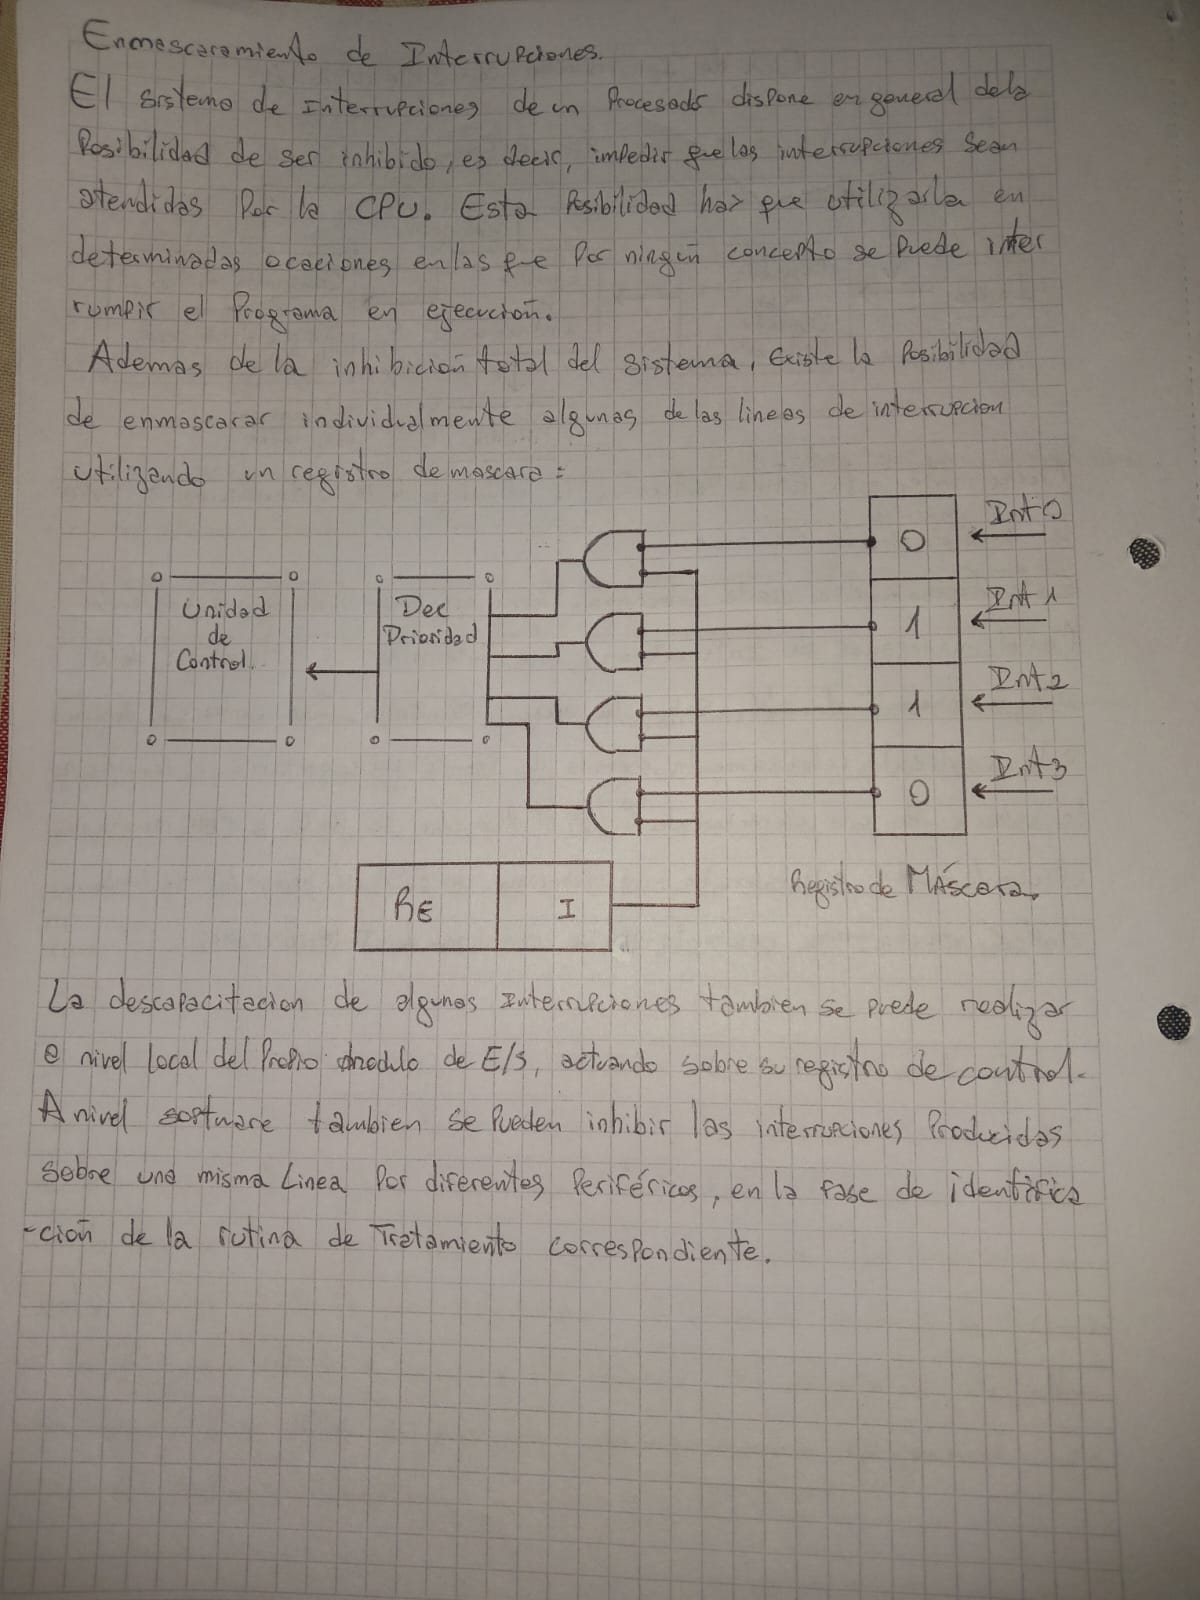 Enmascaramiento de Interrupciones.
El sistema de Interrupciones de un Procesador dispone en general dela
Posibilidad de ser inhibido, es decir, impedir que las interrupciones sean
atendidas Por la CPU. Esta Posibilidad hay que utilizarla en
determinadas ocaciones en las que Por ningún concepto se Puede inter
rumpir el Programa en ejecución.
Ademas de la inhibición total del sistema, Existe la Posibilidad
de enmascarar individualmente algunas de las lineas de interrupcion
utilizando un registro de mascara:
Int0
0
Int1
1
Int2
1
Int3
0
Unidad
de
Control.
Dec
Prioridad
RE
I
Registro de MÁscara.
La descapacitacion de algunas Interrupciones tambien se puede realizar
a nivel local del Propio modulo de E/S, actuando sobre su registro de control.
A nivel software tambien se Pueden inhibir las interrupciones Producidas
sobre una misma Linea Por diferentes Periféricos, en la fase de identifica
-ción de la rutina de Tratamiento correspondiente.